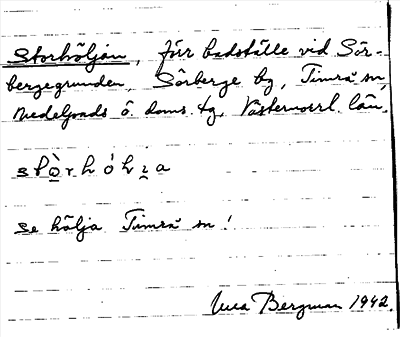 Storhöljan, förr badställe vid Sör-
bergegrunden, Sörberge by, Timrå sn,
Medelpads ö. doms. tg, Västernorrl. län.
se hölja Timrå sn!
Bergman 1942.